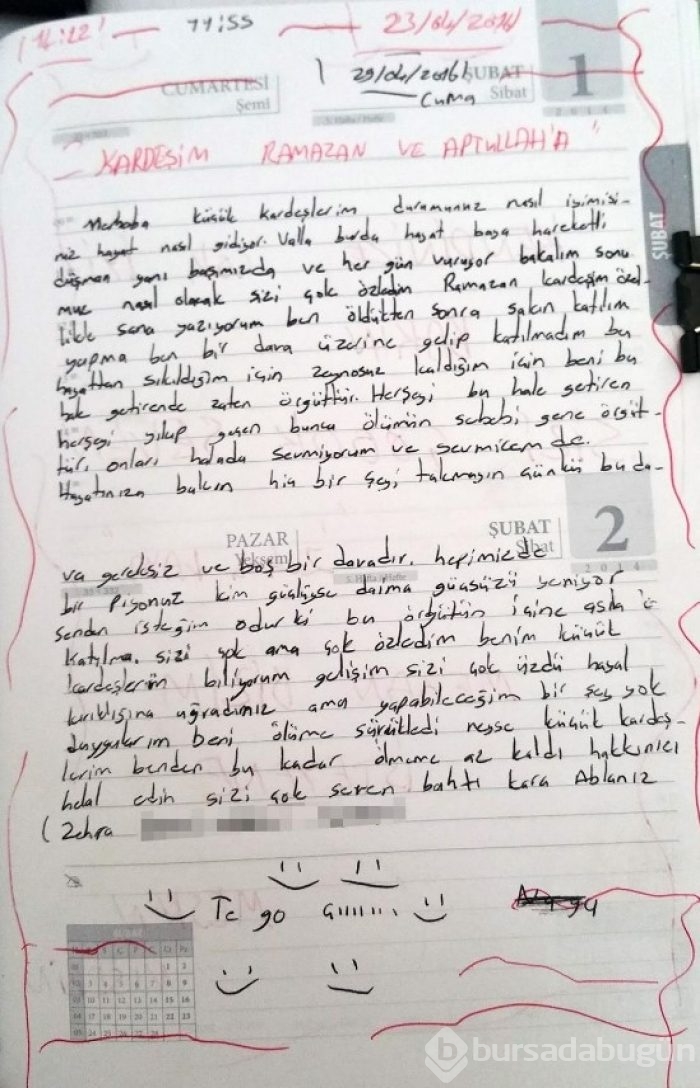 14:22 — 11:55 — 23/04/2016
CUMARTESİ
Şemî
29/04/2016
Cuma
ŞUBAT
Sibat
1
2 0 1 4
ŞUBAT
"KARDEŞİM RAMAZAN VE APTULLAH'A"
Merhaba küçük kardeşlerim durumunuz nasıl
niz hayat nasıl gidiyor. Valla burda hayat baya hareketli
düşman yanı başımızda ve her gün vuruyor bakalım sonu
muz nasıl olacak sizi çok özledim Ramazan kardeşim özel-
likle sana yazıyorum ben öldükten sonra sakın katılım
yapma ben bir dava üzerine gelip katılmadım bu
hayattan sıkıldığım için kaldığım için beni bu
hale getirende zaten örgüttür. Herşeyi bu hale getiren
herşeyi yıkıp geçen bunca ölümün sebebi gene örgüt-
tür, onları halada sevmiyorum ve sevmicem de.
Hayatınıza bakın hiç bir şeyi takmayın çünkü bu da-
PAZAR
Yekşem
ŞUBAT
Sibat
2
2 0 1 4
va gereksiz ve boş bir davadır. hepimizde
bir piyonuz kim güçlüyse daima güçsüzü yeniyor
senden isteğim odur ki bu örgütün içine asla
katılma. sizi çok ama çok özledim benim küçük
kardeşlerim biliyorum gelişim sizi çok üzdü hayal
kırıklığına uğradınız ama yapabileceğim bir şey yok
duygularım beni ölüme sürükledi neyse küçük kardeş-
lerim benden bu kadar ölmeme az kaldı hakkınızı
helal edin sizi çok seven bahtı kara Ablanız
(Zehra
bursadabugün